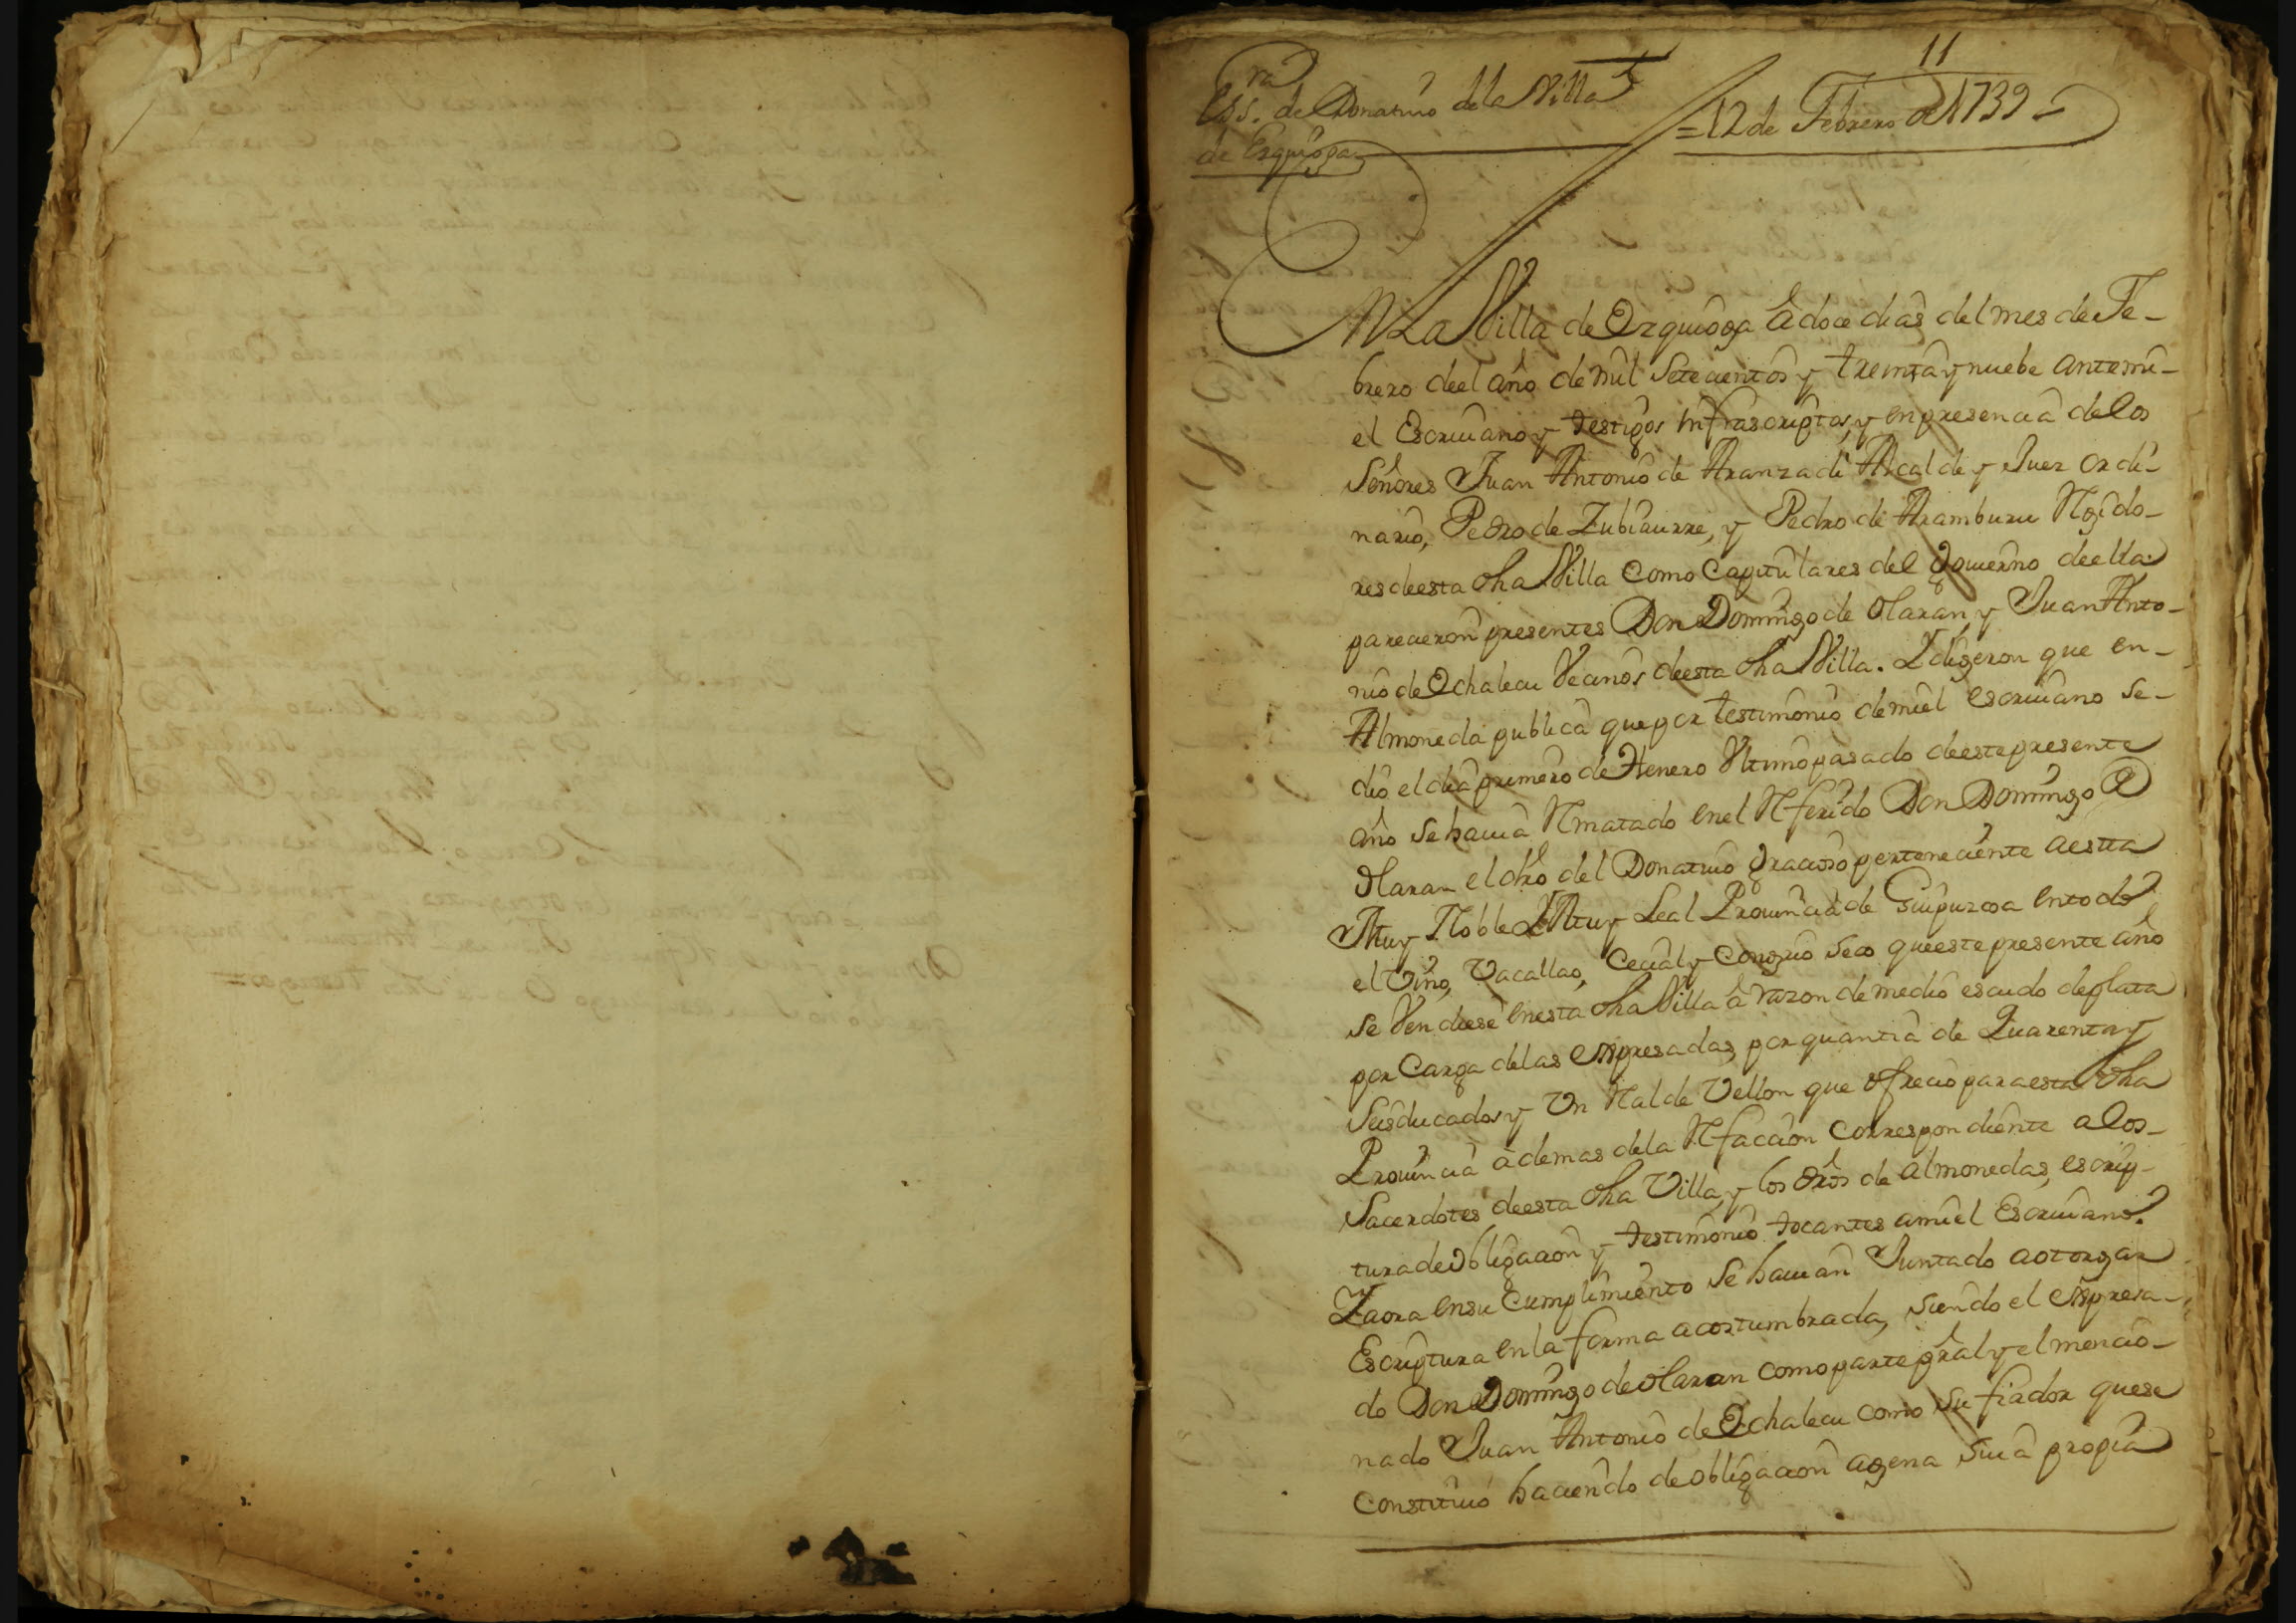 11
Ess.ra de Donatiuo dela Villa
de Ezquioga
=12 de Febrero de 1739=
En La Villa de Ezquioga à doce dias del mes de Fe-
brero deel año de mil Setecientos y treinta y nuebe antemi-
el Escriuano y testigos infrascriptos, y en presencia de los
Señores Juan Antonio de Aranzadi Alcalde y Juez ordi-
nario, Pedro de Zubiaurre, y Pedro de Aramburu Rexido-
res deesta dha Villa Como Capitulares del gouierno deella
parecieron presentes Don Domingo de Olaran, y Juan Anto-
nio de Echalecu Vecinos deesta dha Villa. I digeron que en-
Almoneda publica que por testimonio de mi el escriuano se-
dio el dia primero de Henero Vltimo pasado deeste presente
año se hauia Rmatado en el Rferido Don Domingo de
Olaran el dro del Donatiuo gracioso perteneciente a estta
Muy Noble I Muy Leal Prouincia de Guipuzcoa en todo
el Vino, Vacallao, Cecial y Congrio seco que este presente año
se Vendiese en esta dha Villa à razon de medio escudo de plata
por Carga de las expresadas, por quantia de Quarenta y
Seis ducados y Vn Real de Vellon que ofrecio para esta dha
Prouincia àdemas de la Rfaccion correspondiente a los-
Sacerdotes deesta dha Villa, y los dros de almonedas, escrip-
tura de obligacion y testimonio tocantes a mi el Escriuano.
I aora en su Cumplimiento se hauian Juntado a otorgar
Escriptura en la forma acostumbrada, siendo el expresa-
do Don Domingo de Olaran como parte pral y el mencio-
nado Juan Antonio de Echalecu como su fiador que se
Constituió haciendo de obligacion agena suia propia